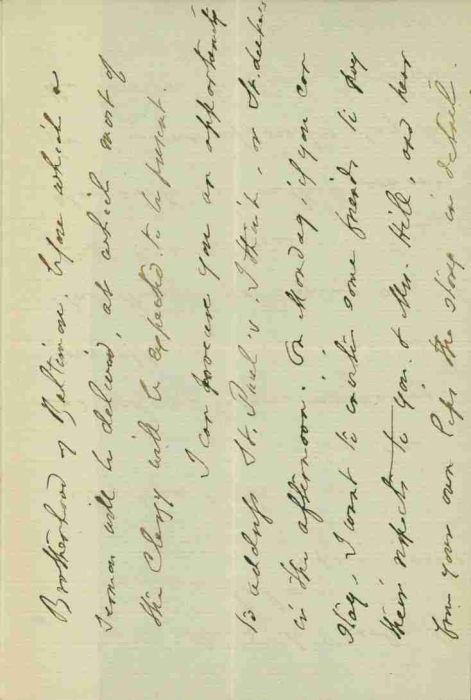 Brotherhood of Baltimore, before which a
sermon will be delivered, at which most of
the Clergy will be expected to be present.
I can procure you an opportunity
to address St. Paul's, I think, or St. Peter's
in the afternoon. On Monday, if you can
stay, I want to invite some friends to pay
their respects to you & Mrs. Hill, and hear
from your own lips the story in detail.